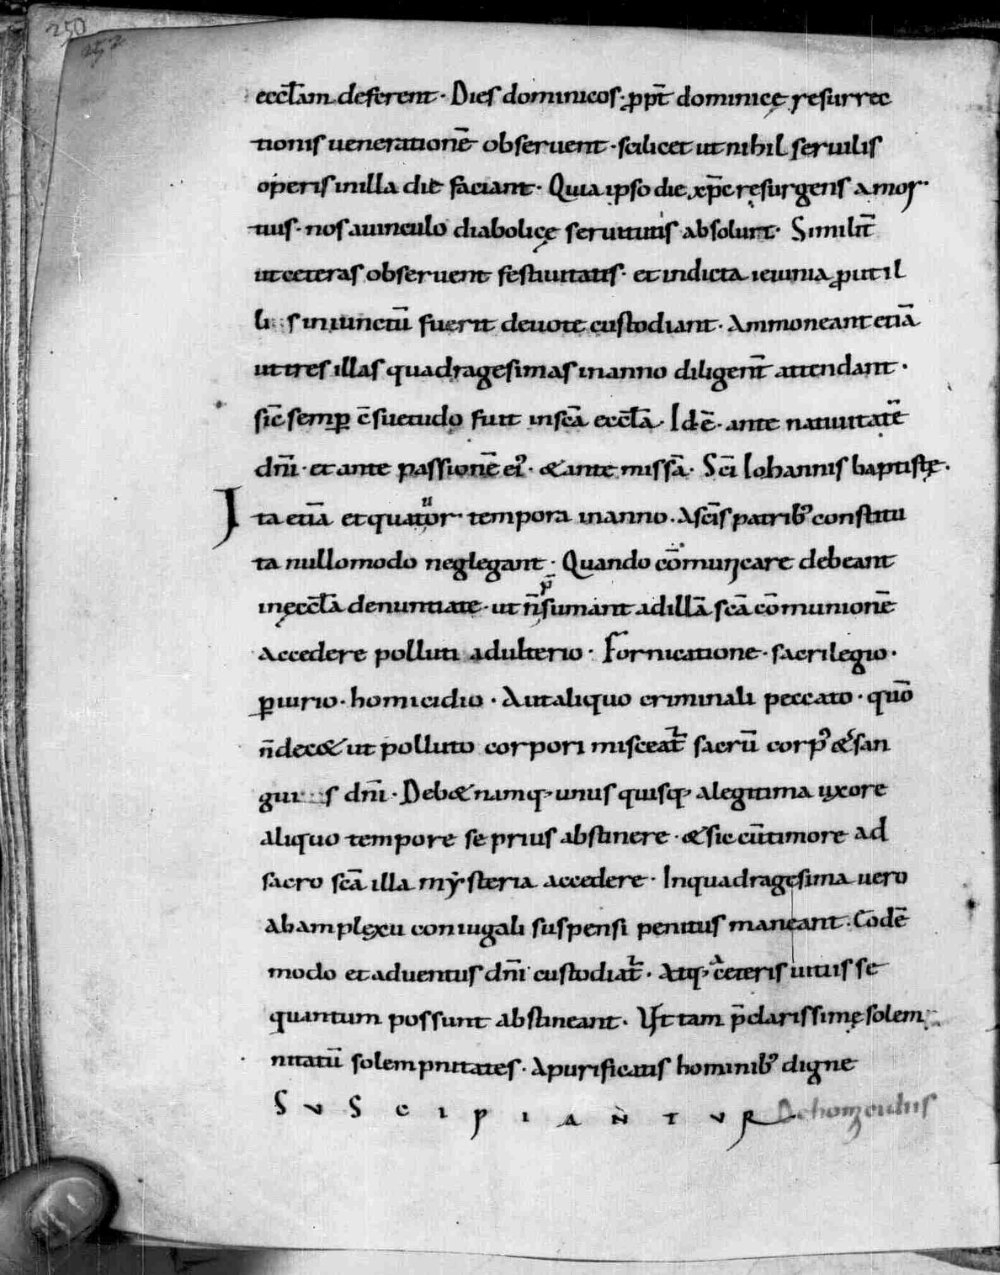 250
252
eccl̄am deferent· Dies dominicos· ꝓpt̄ dominicę resurrec
tionis uenerationē obseruent· scilicet ut nihil seruilis
operis in illa die faciant· Quia ipso die xp̄c resurgens a mor
tuis· nos a uinculo diabolicę seruitutis absoluit· Similit̄
ut ceteras obseruent festiuitatis· et indicta ieiunia ꝓut il
s iniunctū fuerit deuote custodiant· Ammoneant etiā
ut tres illas quadragesimas in anno diligent̄ attendant·
sic̄ semꝑ c̄suetudo fuit in scā eccl̄a· Id ē· ante natiuitatē
dn̄i· et ante passionē ei᾿· & ante missā· Sc̄i Iohannis baptistę·
Ita etiā et quatuor· tempora in anno· A sc̄is patrib᾿ constitu
ta nullomodo neglegant· Quando cōmunicare debeant
in ęccl̄a denuntiate· ut n̄ p̄sumant ad illā scā cōmunionē
accedere polluti adulterio· Fornicatione· sacrilegio·
ꝑiurio· homicidio· Aut aliquo criminali peccato· quō
n̄ dec& ut polluto corpori misceat᷑ sacrū corp᾿ & san
gui s dn̄i· Deb& namq; unus quisq; a legitima uxore
aliquo tempore se prius abstinere· & sic cū timore ad
sacro scā illa mẏsteria accedere· In quadragesima uero
ab amplexu coniugali suspensi penitus maneant· Eodē
modo et aduentus dn̄i custodiat᷑· Atq; a ceteris uitiis se
quantum possunt abstineant· Ut tam p̄clarissimę solem
nitatū solempnitates· A purificatis hominib᾿ digne
SUSCIPIANTUR De homicidiis